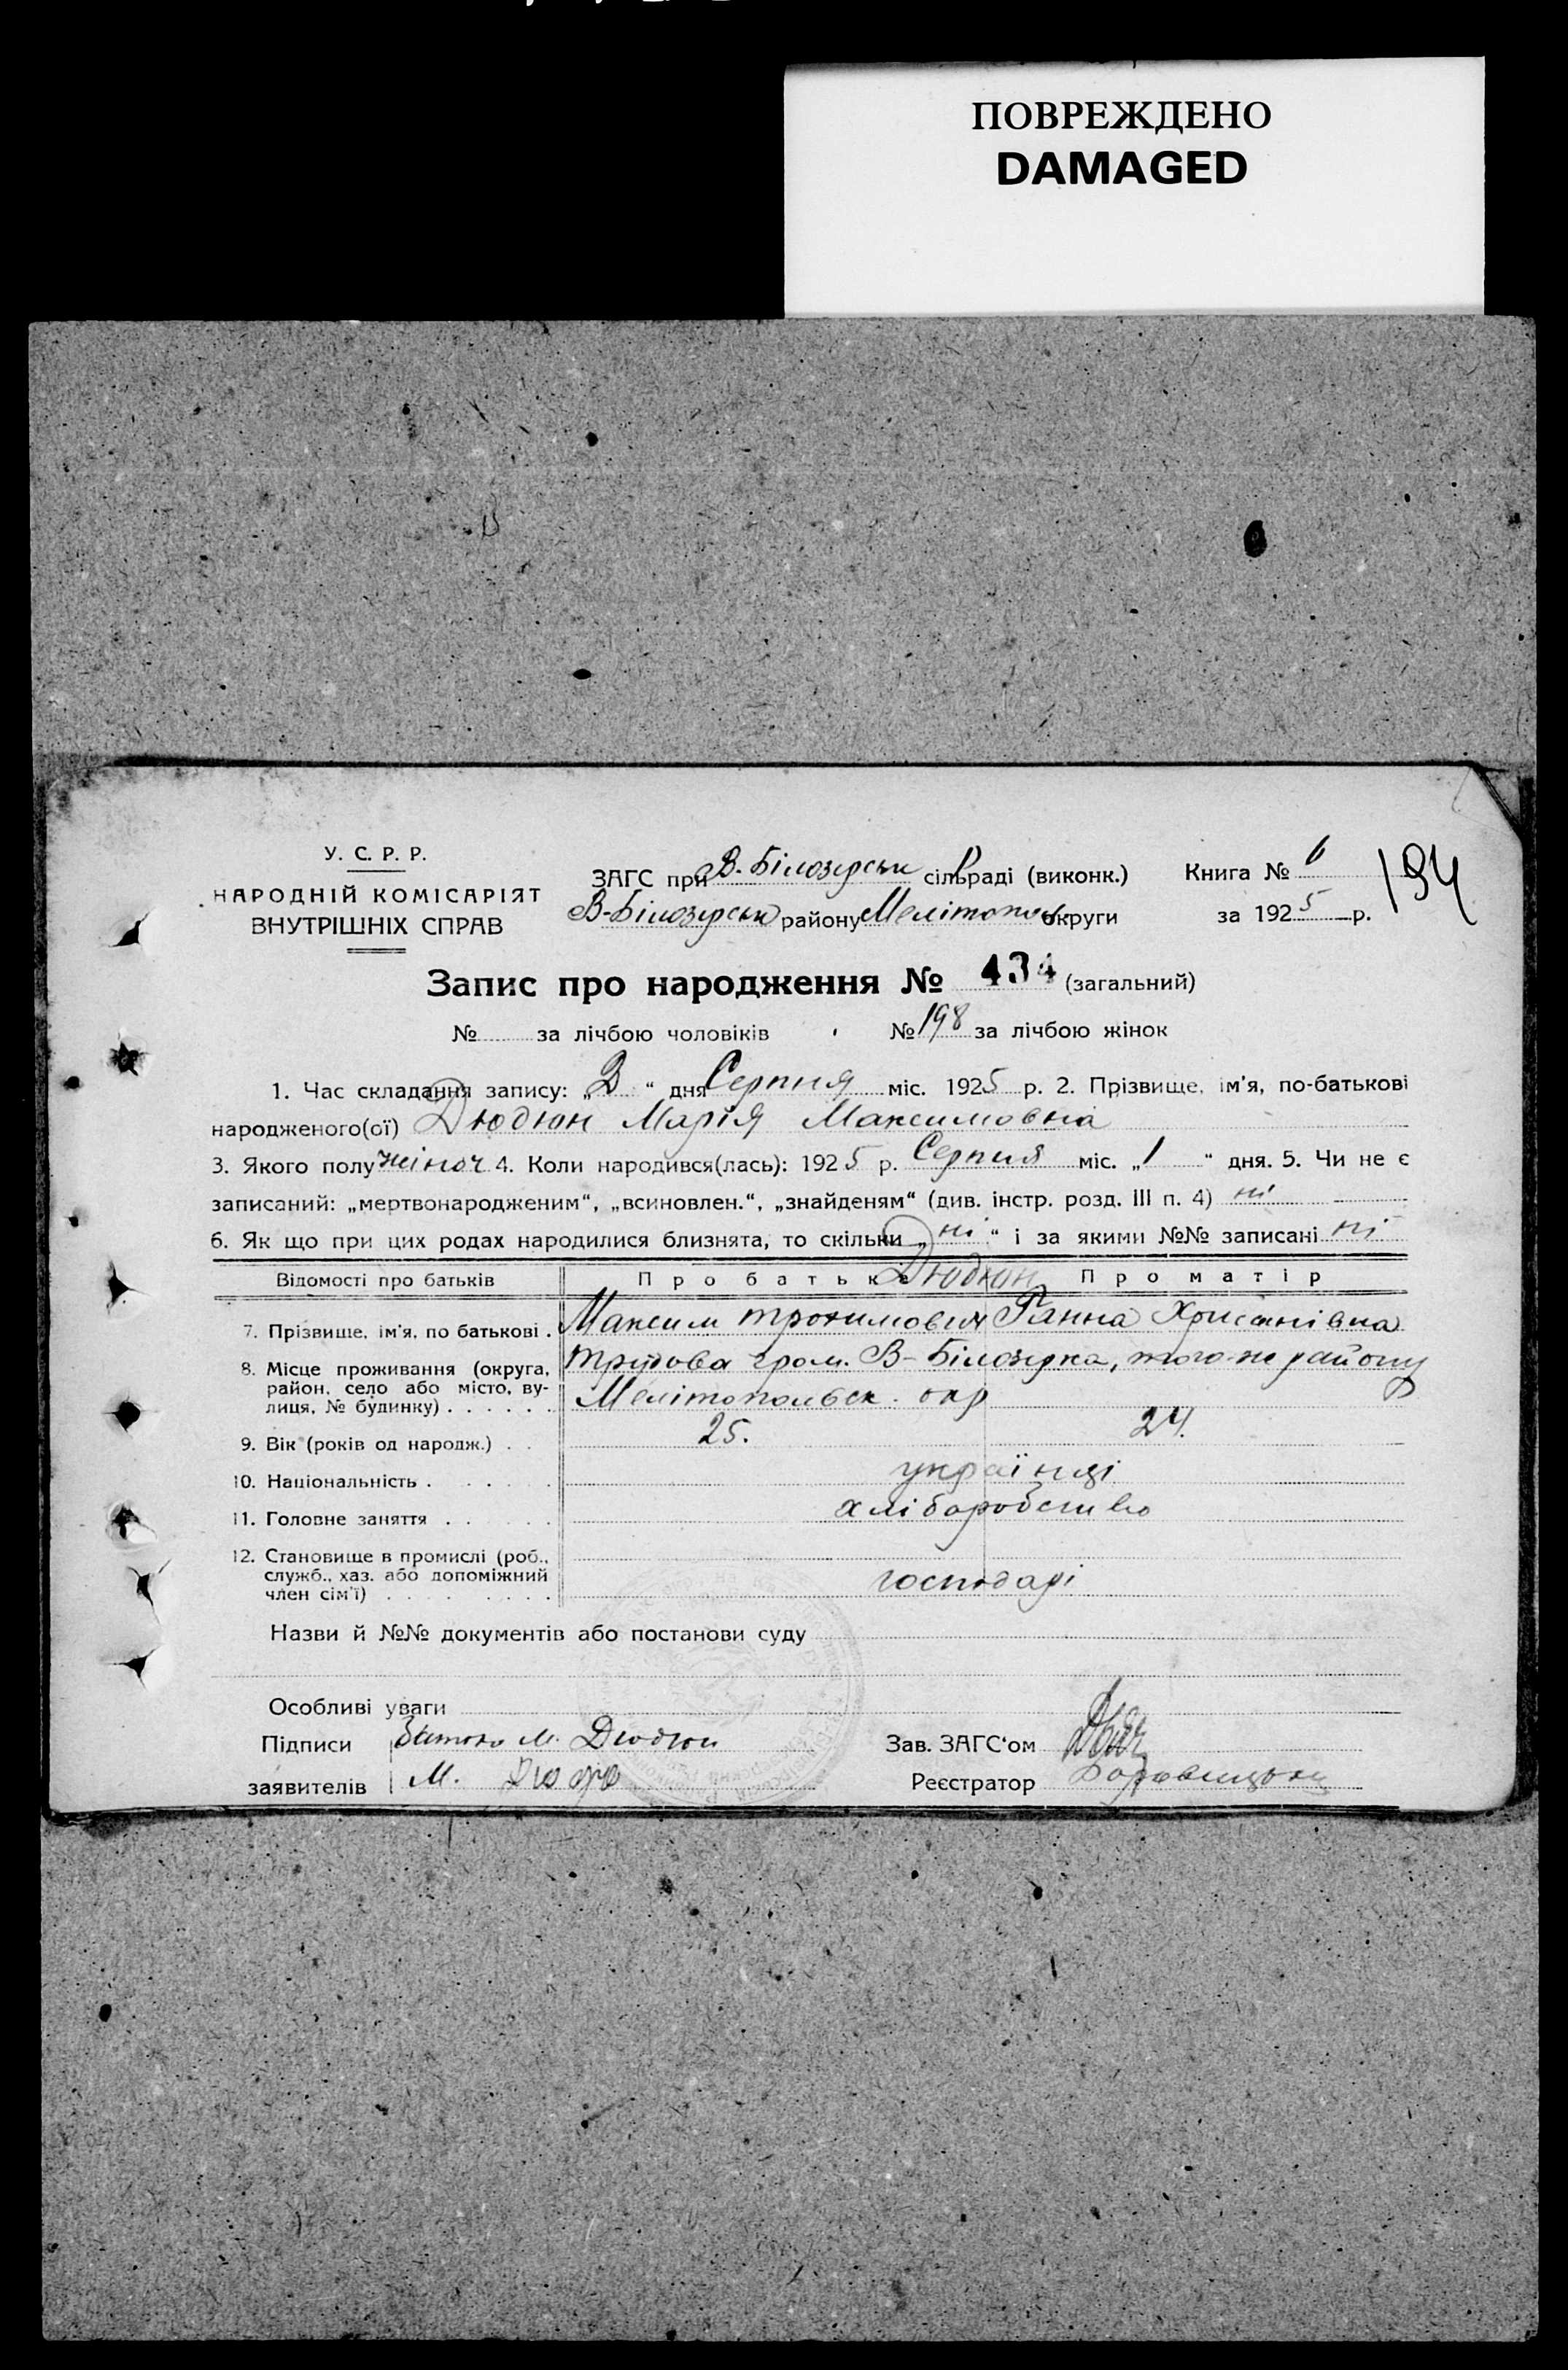 ПОВРЕЖДЕНО
DAMAGED
У. С. Р. Р.
НАРОДНІЙ КОМІСАРІЯТ
ВНУТРІШНІХ СПРАВ
ЗАГС при В. Білозерськ сільраді (виконк.)
В-Білозерськ району Мелітопол округи
Книга № 6
за 1925 р.
194
Запис про народження № 434 (загальний)
№ за лічбою чоловіків № 198 за лічбою жінок
1. Час складання запису: „3“ дня Серпня міс. 1925 р. 2. Прізвище, ім'я, по-батькові
народженого(ої) Дюдюн Марія Максимовна
3. Якого полу жіноч 4. Коли народився(лась): 1925 р. Серпня міс. „1“ дня. 5. Чи не є
записаний: „мертвонародженим“, „всиновлен.“, „знайденям“ (див. інстр. розд. III п. 4) ні
6. Як що при цих родах народилися близнята, то скільки „ні“ і за якими №№ записані ні
Відомості про батьків Про батька Дюдюн Про матір
7. Прізвище, ім'я, по батькові . Максим Трохимович Ганна Хрисанівна
8. Місце проживання (округа, район, село або місто, вулиця, № будинку) . . . . . .
гром. В-Білозерка, того-же району
Мелітопольск. окр
9. Вік (років од народж.) . . 25. 24.
10. Національність . . . . . . українці
11. Головне заняття . . . . . хліборобство
12. Становище в промислі (роб., служб., хаз. або допоміжний член сім'ї) . . . . . . . . господарі
Назви й №№ документів або постанови суду
Особливі уваги
Підписи М. Дюдюн
заявителів М. Дюдю
Зав. ЗАГС'ом
Реєстратор